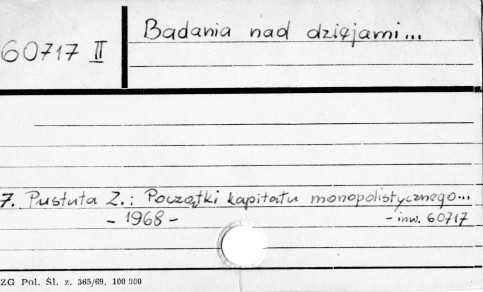 Badania nad dziejami...
60717 II
7. Pustuła Z.: Początki kapitału monopolistycznego...
- 1968 - - inw. 60717
ZG Pol. Śl. z. 365/69. 100 000